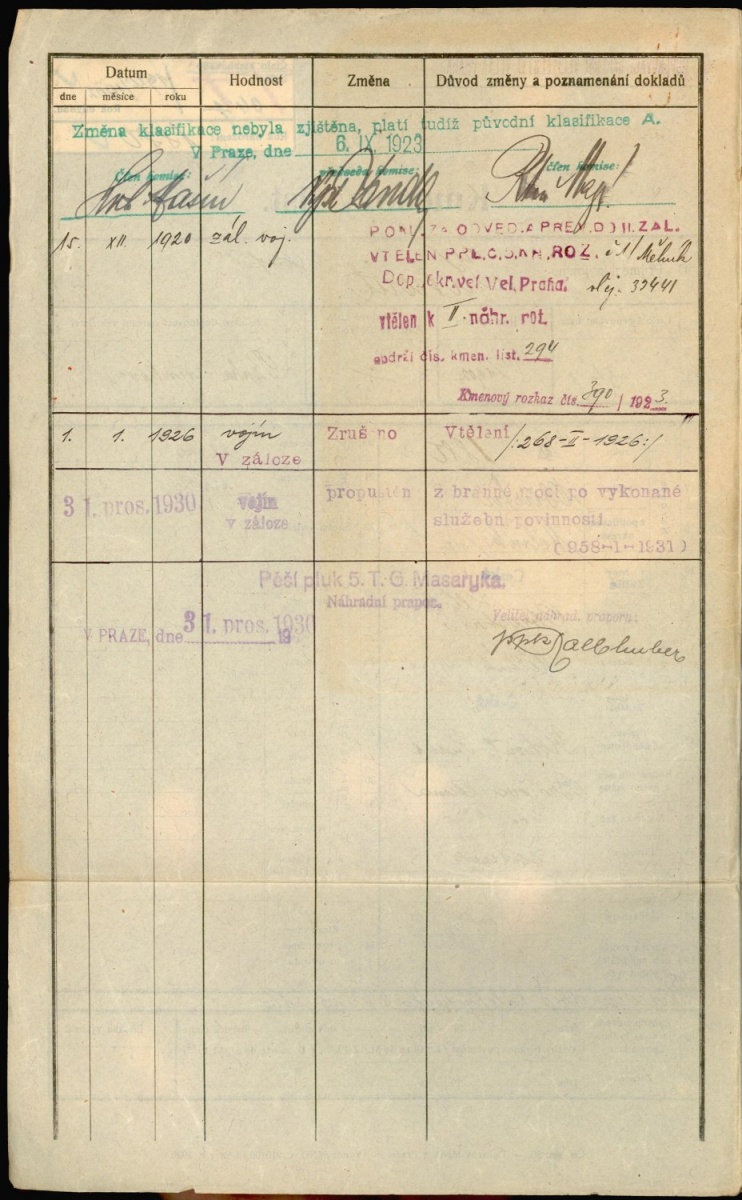 Datum
Hodnost
Změna
Důvod změny a poznamenání dokladů
dne měsíce roku
Změna klasifikace nebyla zjištěna, platí tudíž původní klasifikace A.
V Praze, dne 6. IX. 1923
člen komise: předseda komise: člen komise:
15. XII. 1920 zál. voj.
VTĚLEN
č. 1/ Mělník
Dop. okr. vel. Vel. Praha. včj. 39441
vtělen k II. náhr. rot.
obdržel čís. kmen. list. 294
Kmenový rozkaz čís. 390 / 1923.
1. 1. 1926 vojín Zrušeno Vtělení /:268-II-1926:/
V záloze
31. pros. 1930 vojín propuštěn z branné moci po vykonané
v záloze služební povinnosti
(958-I-1931)
Pěší pluk 5. T. G. Masaryka.
Náhradní prapor.
Velitel náhrad. praporu:
V PRAZE, dne 31. pros. 1930 19